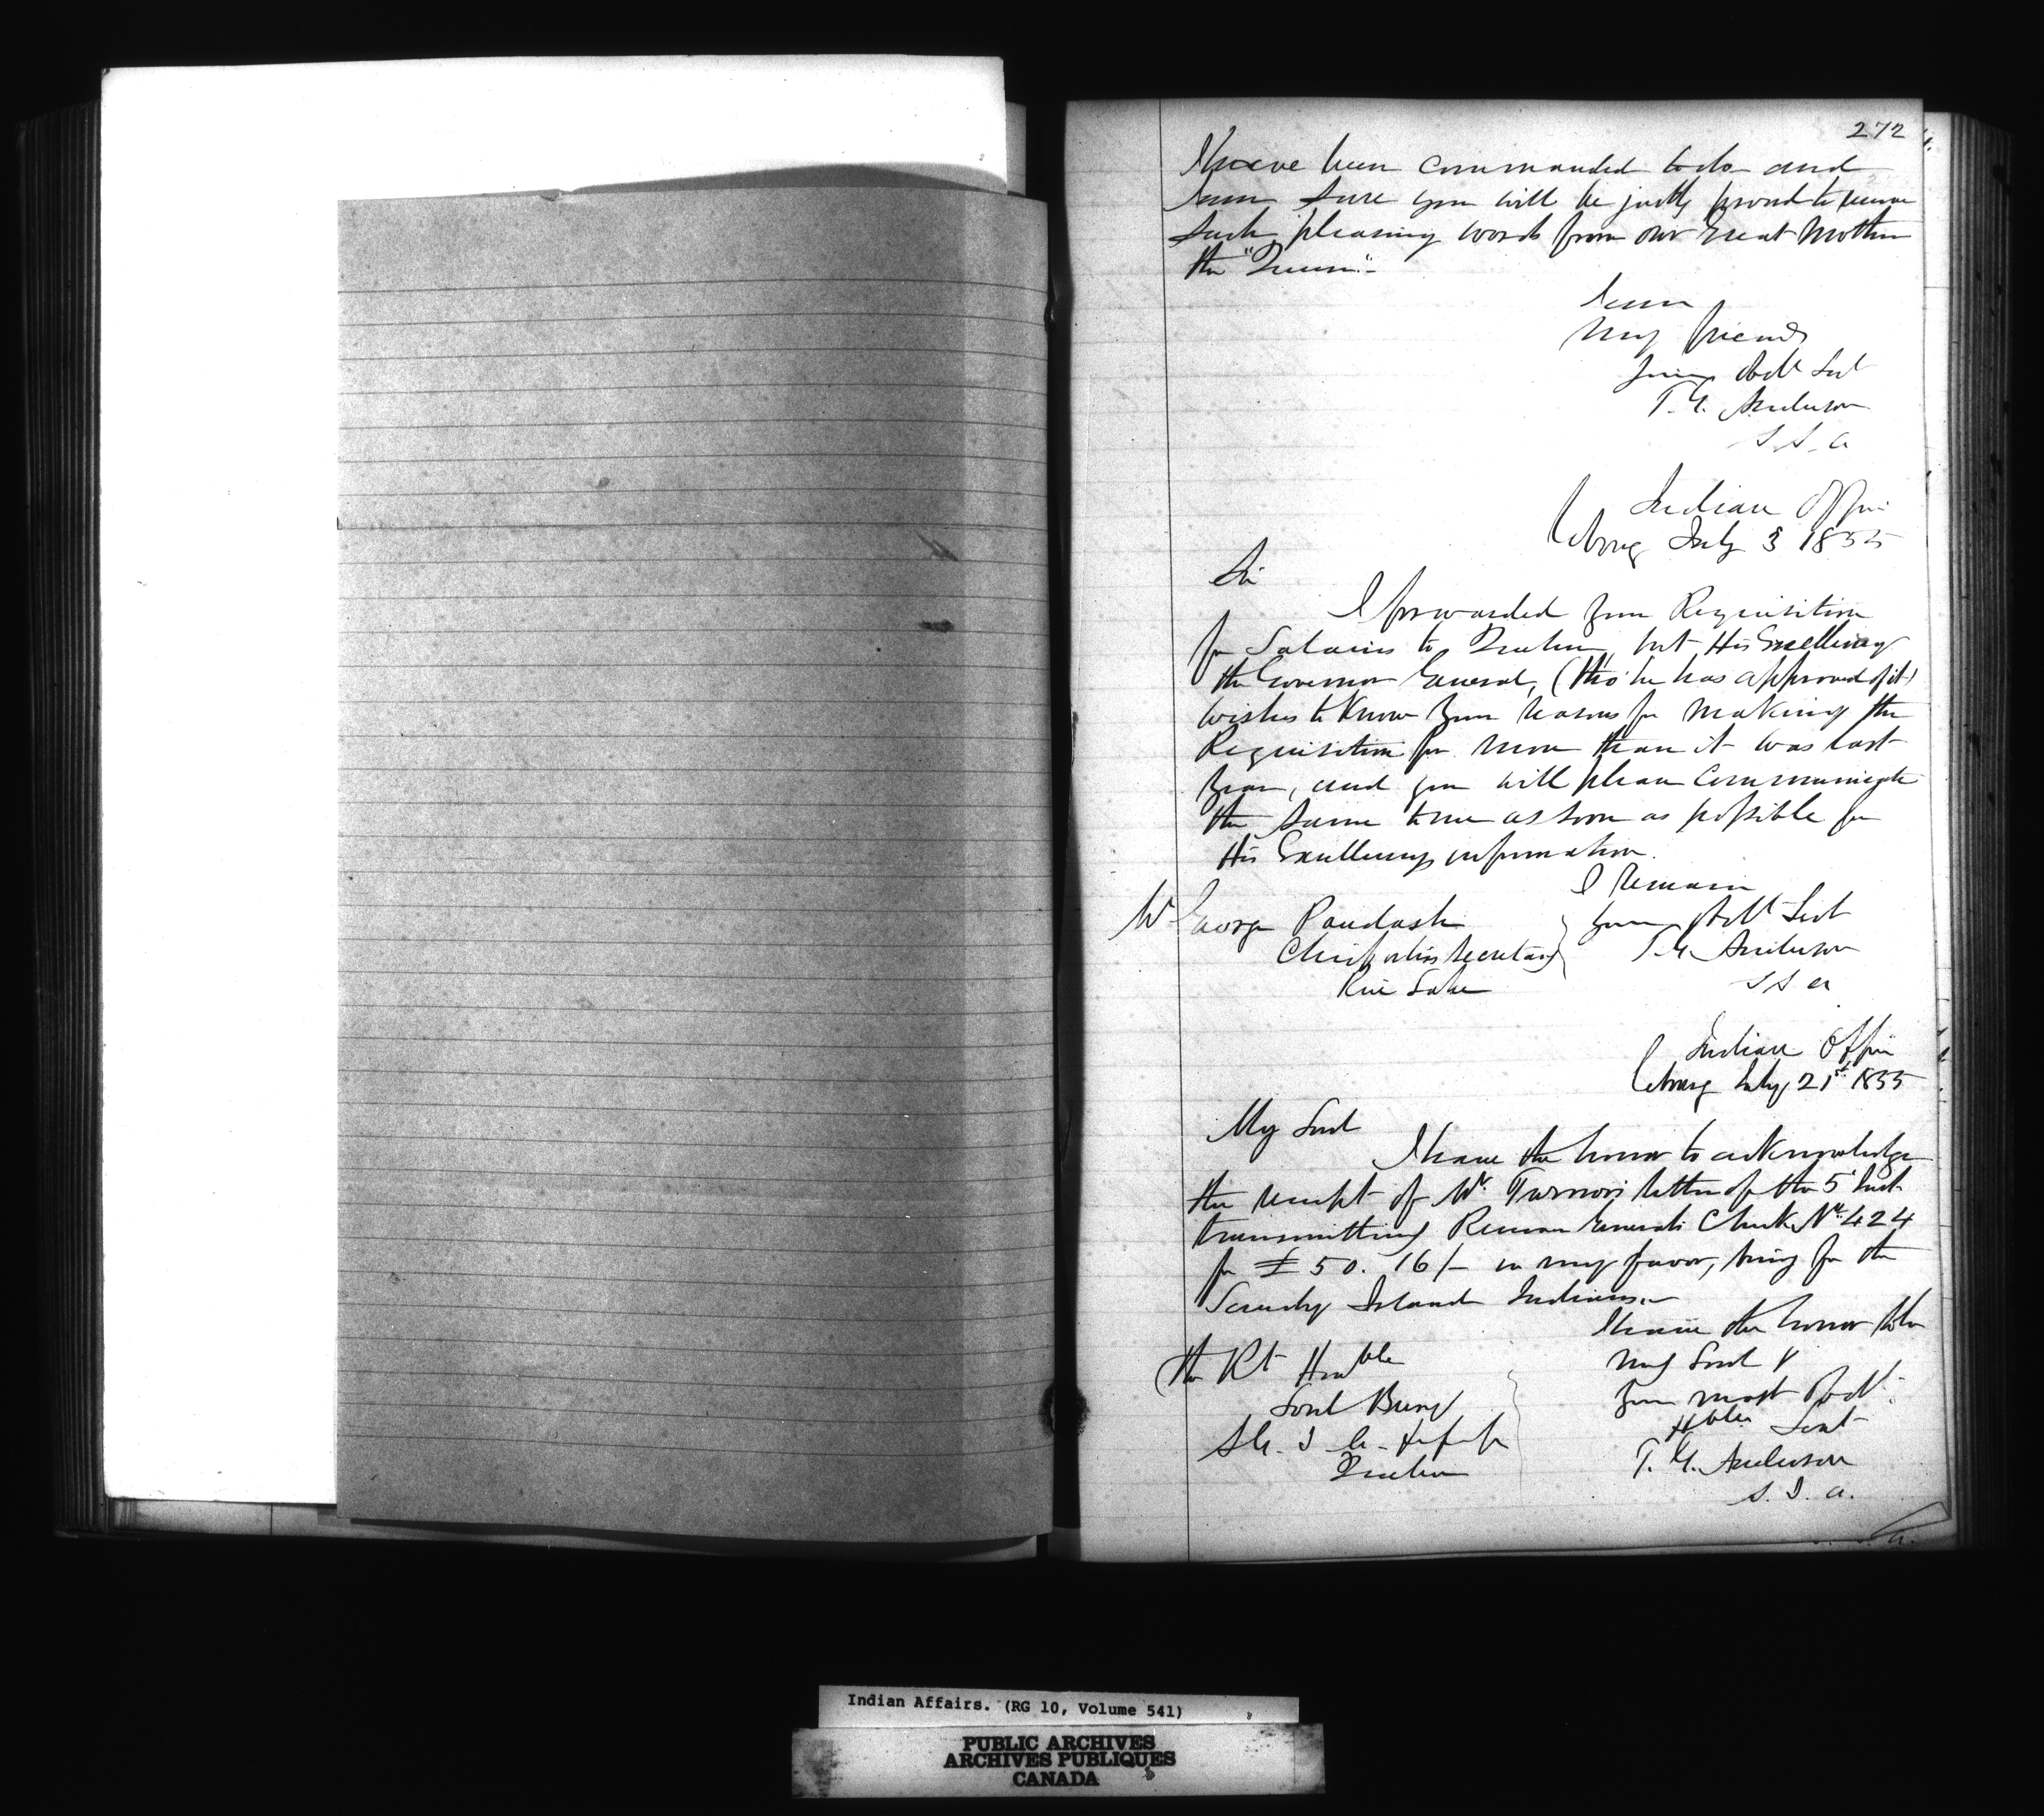 272
I have been commanded to do and
I am sure you will be justly proud to receive
such pleasing words from our Great Mother
the "Queen"-
I am
My friends
Your Obdt Svt
T. G. Anderson
S I A
Indian Office
Cobourg July 3 1855
Sir
I forwarded your Requisition
for Salaries to Quebec, but His Excellency
the Governor General, (tho' he has approved of it)
wishes to know your reasons for making the
Requisition for more than it was last
year, and you will please communicate
the same to me as soon as possible for
His Excellencys information.
I remain
Mr George Paudash
Your Obdt Svt
Chief
Secretary
T. G. Anderson
Rice Lake
S I A
Indian Office
Cobourg July 21st 1855
My Lord
I have the honor to acknowledge
the receipt of Mr. Turnors letter of the 5 Inst
transmitting Receiver Generals Check No. 424
for £50. 16/- in my favor, being for the
Scucog Island Indians.-
I have the honor to be
The Rt Honble
My Lord
Lord Bury
Your most Obdt.
Hble Svt
S. G. I. A.
Quebec
T. G. Anderson
S. I. A.
Indian Affairs. (RG 10, Volume 541)
PUBLIC ARCHIVES
ARCHIVES PUBLIQUES
CANADA